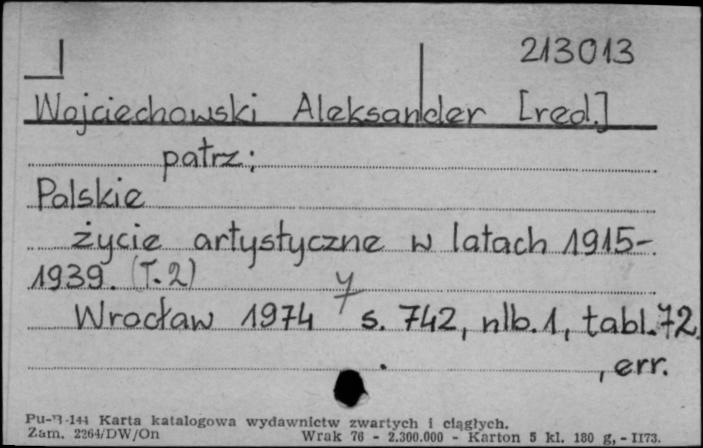 213013
Wojciechowski Aleksander [red.]
patrz:
Polskie
życie artystyczne w latach 1915-
1939. (T. 2)
Wrocław 1974 s. 742, nlb. 1, tabl. 72
, err.
Karta katalogowa wydawnictw zwartych i ciągłych.
Zam. 2264/DW/On Wrak 76 - 2.300.000 - Karton 5 kl. 180 g, - II73.